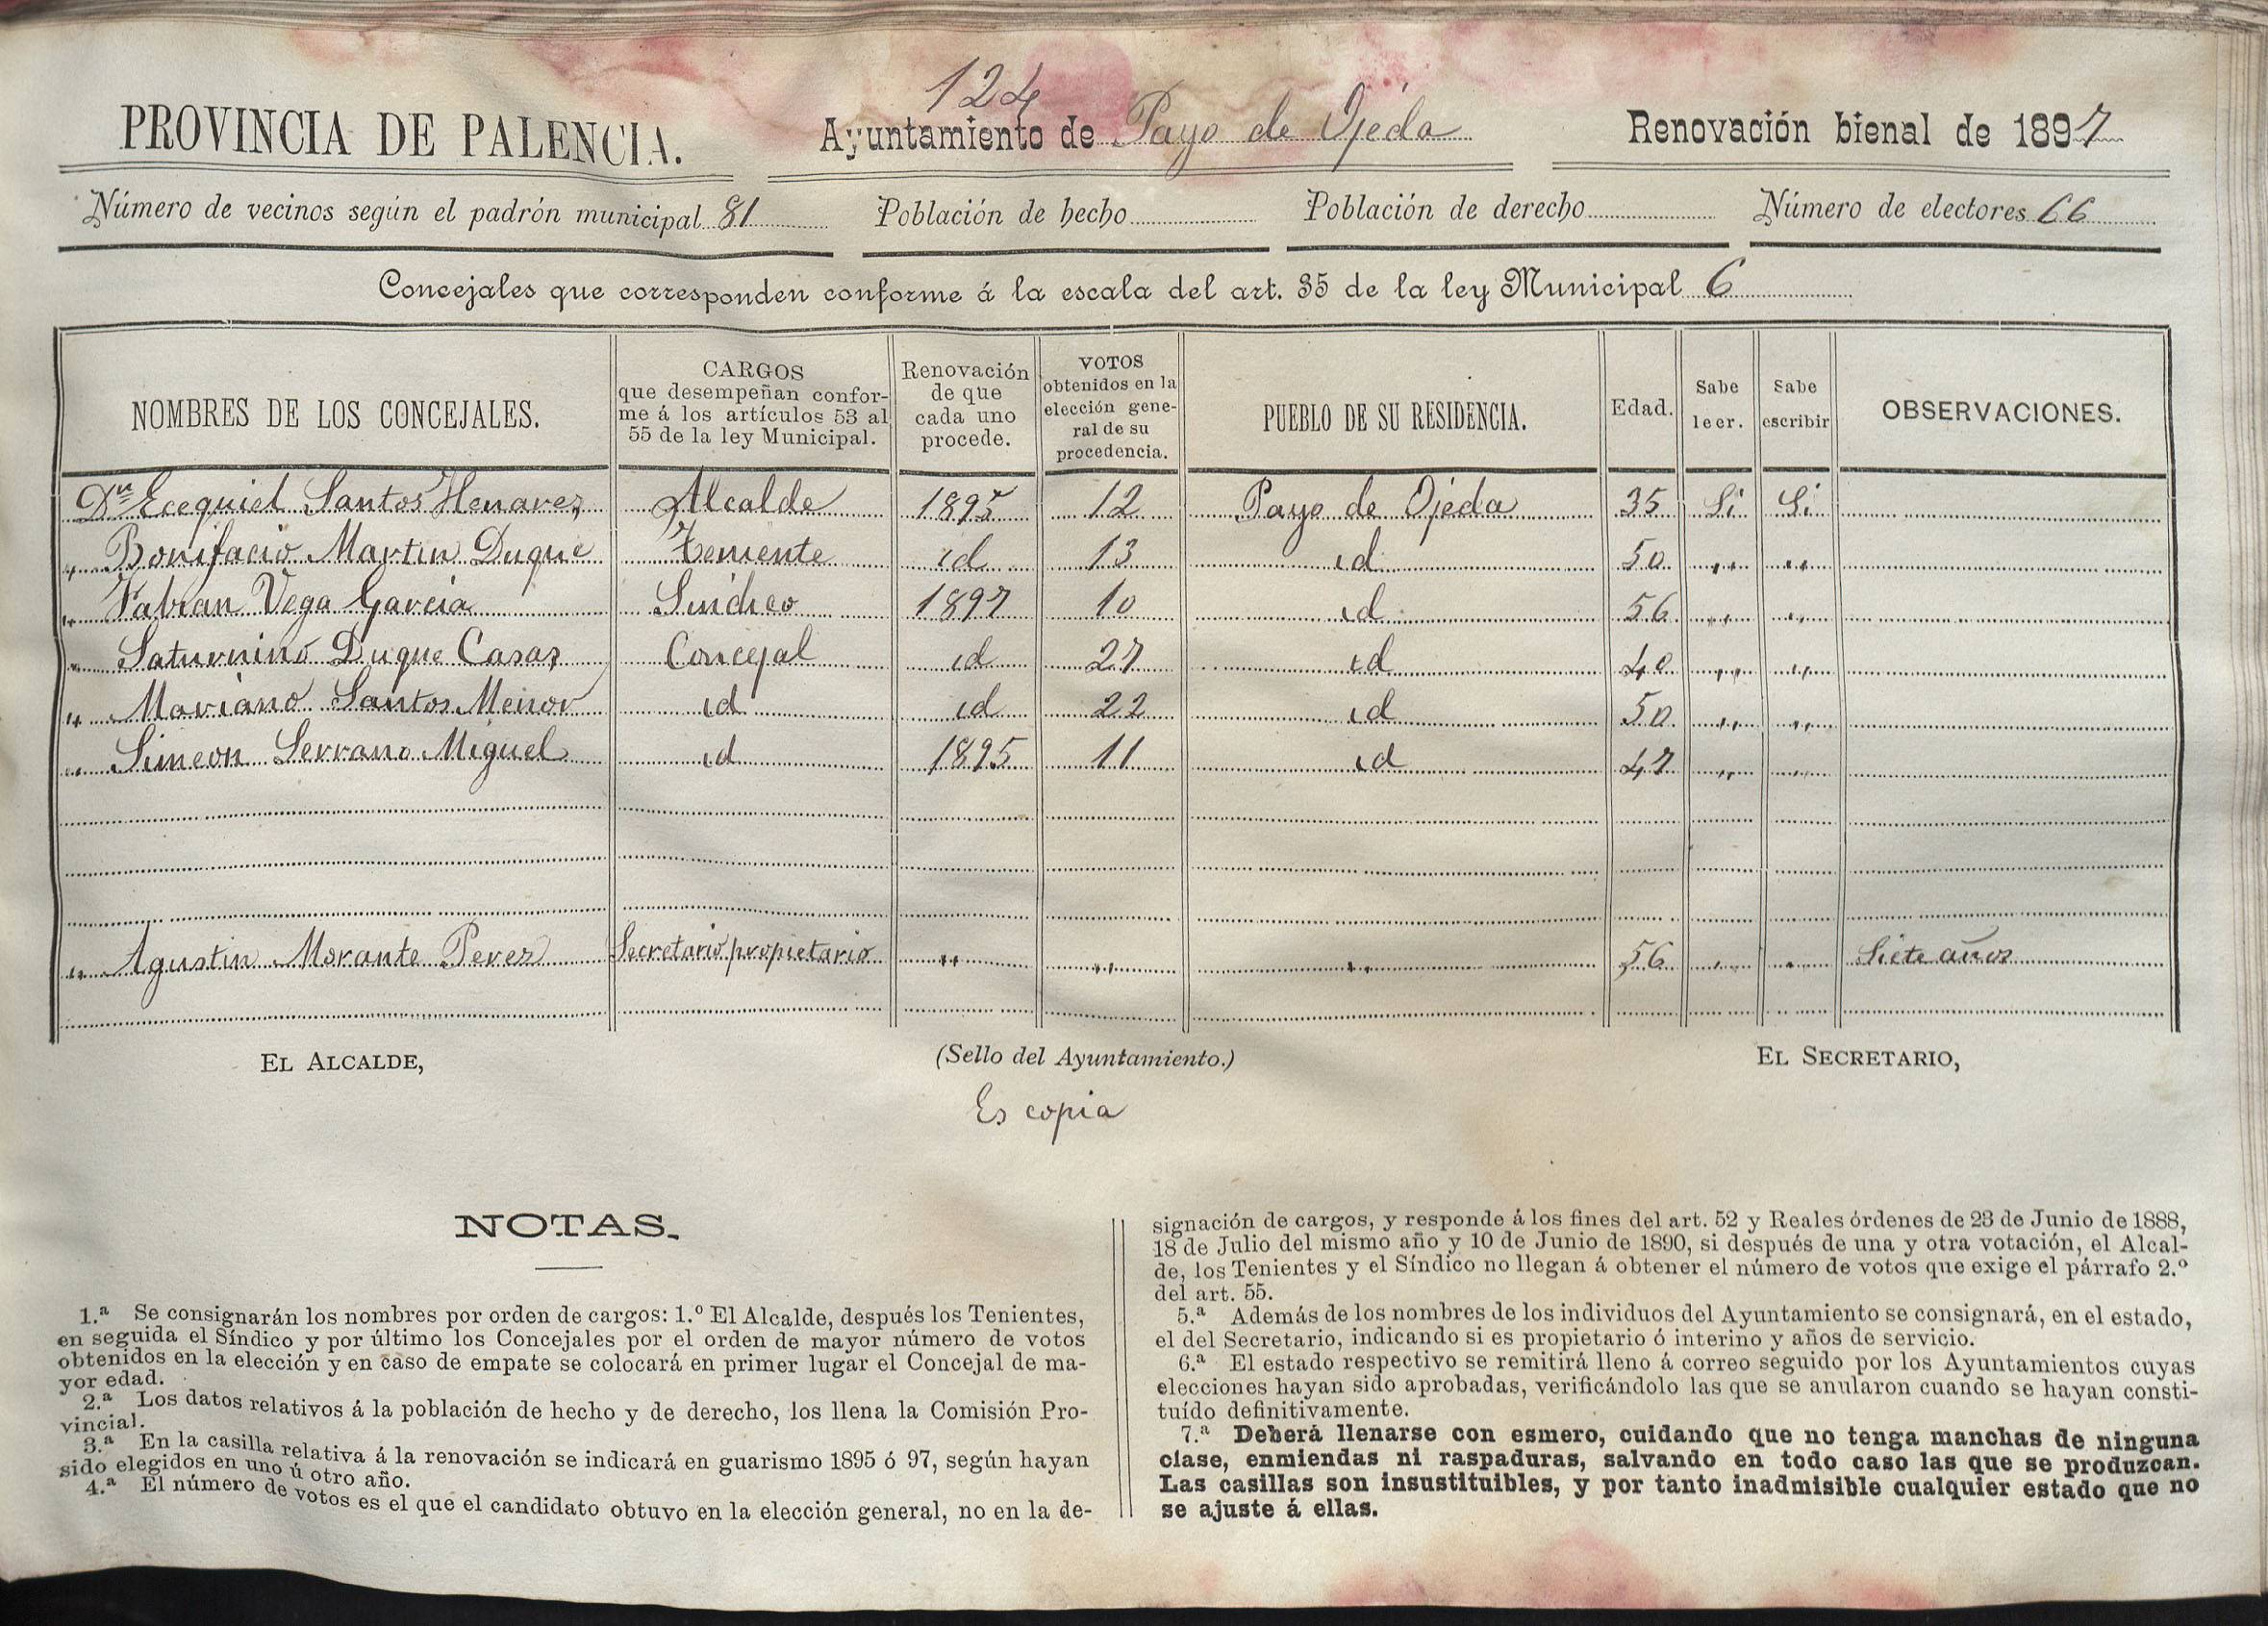 124
PROVINCIA DE PALENCIA. Ayuntamiento de Payo de Ojeda Renovación bienal de 1897
Número de vecinos según el padrón municipal 81 Población de hecho Población de derecho Número de electores 66
Concejales que corresponden conforme á la escala del art. 35 de la ley Municipal 6
NOMBRES DE LOS CONCEJALES. CARGOS que desempeñan conforme á los artículos 53 al 55 de la ley Municipal. Renovación de que cada uno procede. VOTOS obtenidos en la elección general de su procedencia. PUEBLO DE SU RESIDENCIA. Edad. Sabe leer. Sabe escribir OBSERVACIONES.
Dn Ecequiel Santos Henares Alcalde 1895 12 Payo de Ojeda 35 Si Si
" Bonifacio Martin Duque Teniente id 13 id 50 " "
" Fabian Vega Garcia Sindico 1897 10 id 56 " "
" Saturnino Duque Casas Concejal id 27 id 40 " "
" Mariano Santos Menor id id 22 id 50 " "
" Simeon Serrano Miguel id 1895 11 id 47 " "
" Agustin Morante Perez Secretario propietario " " " 56 " " Siete años
EL ALCALDE, (Sello del Ayuntamiento.) EL SECRETARIO,
Es copia
NOTAS.
1.ª Se consignarán los nombres por orden de cargos: 1.º El Alcalde, después los Tenientes,
en seguida el Síndico y por último los Concejales por el orden de mayor número de votos
obtenidos en la elección y en caso de empate se colocará en primer lugar el Concejal de ma-
yor edad.
2.ª Los datos relativos á la población de hecho y de derecho, los llena la Comisión Pro-
vincial.
3.ª En la casilla relativa á la renovación se indicará en guarismo 1895 ó 97, según hayan
sido elegidos en uno ú otro año.
4.ª El número de votos es el que el candidato obtuvo en la elección general, no en la de-
signación de cargos, y responde á los fines del art. 52 y Reales órdenes de 23 de Junio de 1888,
18 de Julio del mismo año y 10 de Junio de 1890, si después de una y otra votación, el Alcal-
de, los Tenientes y el Síndico no llegan á obtener el número de votos que exige el párrafo 2.º
del art. 55.
5.ª Además de los nombres de los individuos del Ayuntamiento se consignará, en el estado,
el del Secretario, indicando si es propietario ó interino y años de servicio.
6.ª El estado respectivo se remitirá lleno á correo seguido por los Ayuntamientos cuyas
elecciones hayan sido aprobadas, verificándolo las que se anularon cuando se hayan consti-
tuído definitivamente.
7.ª Deberá llenarse con esmero, cuidando que no tenga manchas de ninguna
clase, enmiendas ni raspaduras, salvando en todo caso las que se produzcan.
Las casillas son insustituibles, y por tanto inadmisible cualquier estado que no
se ajuste á ellas.